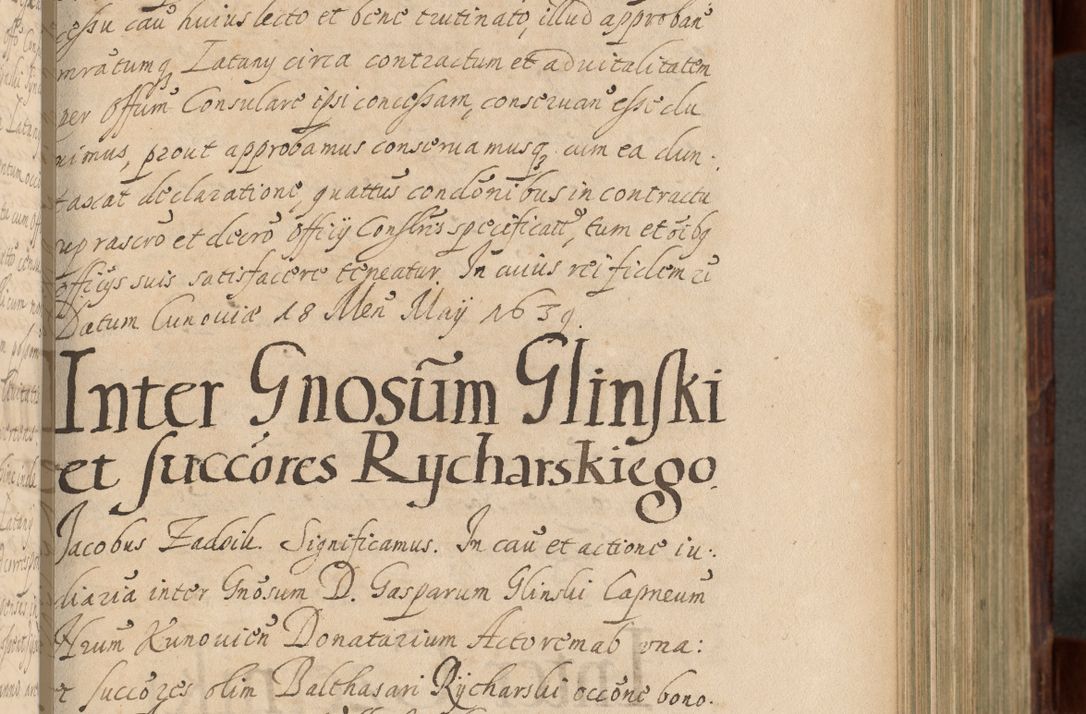 cessu cau huius lecto et bene trutinato, illud approban
mratumq Latany circa contractum et aduitalitatem
per Offum Consulare ipsi concessam, conseruan esse du
ximus, prout approbamus conseruamusq cum ea dun.
taxat declaratione, quattus condonibus in contractu
et decro Officij Conslris specificatt, tum et oibq
officijs suis satisfacere teneatur. In cuius rei fidem
Datum Cunouiæ 18 Men Maij 1639.
Inter Gnosum Glinski
et succores Rycharskiego.
Jacobus Zadzik. Significamus. In cau et actione iu:
diaria inter Gnosum D. Gasparum Glinski Capneum
Nrum Kunouien Donatarium Actorem ab vna:
et succores olim Balthasari Rycharski occone bono.